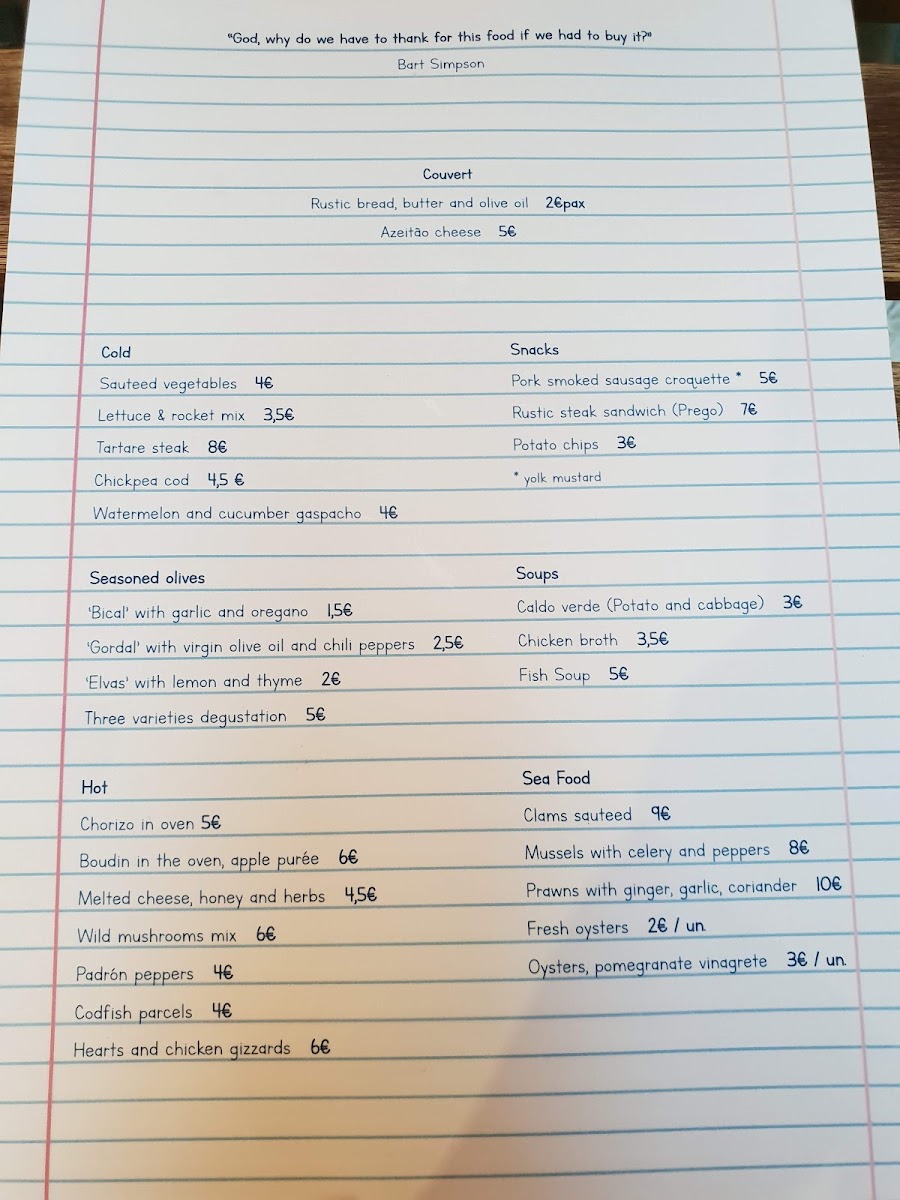 "God, why do we have to thank for this food if we had to buy it?"
Bart Simpson
Couvert
Rustic bread, butter and olive oil 2€pax
Azeitão cheese 5€
Cold
Sauteed vegetables 4€
Lettuce & rocket mix 3,5€
Tartare steak 8€
Chickpea cod 4,5 €
Watermelon and cucumber gaspacho 4€
Snacks
Pork smoked sausage croquette * 5€
Rustic steak sandwich (Prego) 7€
Potato chips 3€
* yolk mustard
Seasoned olives
'Bical' with garlic and oregano 1,5€
'Gordal' with virgin olive oil and chili peppers 2,5€
'Elvas' with lemon and thyme 2€
Three varieties degustation 5€
Soups
Caldo verde (Potato and cabbage) 3€
Chicken broth 3,5€
Fish Soup 5€
Hot
Chorizo in oven 5€
Boudin in the oven, apple purée 6€
Melted cheese, honey and herbs 4,5€
Wild mushrooms mix 6€
Padrón peppers 4€
Codfish parcels 4€
Hearts and chicken gizzards 6€
Sea Food
Clams sauteed 9€
Mussels with celery and peppers 8€
Prawns with ginger, garlic, coriander 10€
Fresh oysters 2€ / un.
Oysters, pomegranate vinagrete 3€ / un.